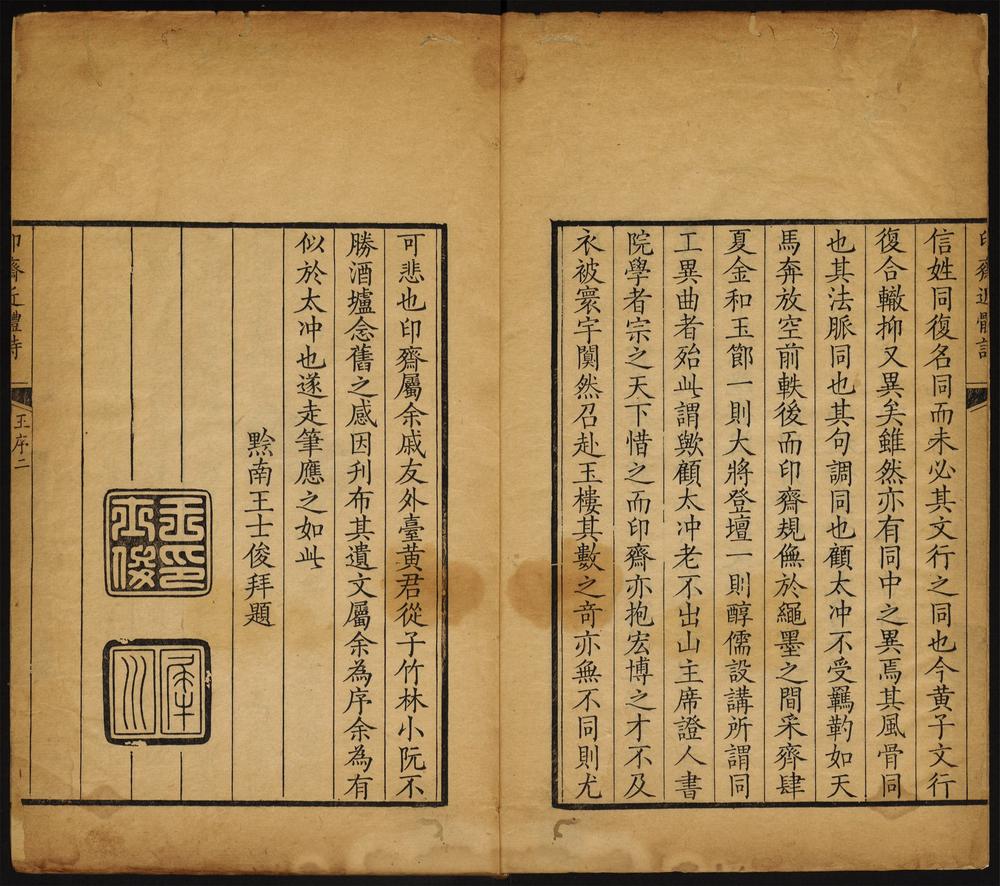 印齋近體詩
信姓同復名同而未必其文行之同也今黄子文行
復合轍抑又異矣雖然亦有同中之異焉其風骨同
也其法脈同也其句調同也顧太冲不受羈靮如天
馬奔放空前軼後而印齋規倕於繩墨之間采齊肆
夏金和玉節一則大將登壇一則醇儒設講所謂同
工異曲者殆此謂歟顧太冲老不出山主席證人書
院學者宗之天下惜之而印齋亦抱宏博之才不及
衣被寰宇闃然召赴玉樓其數之奇亦無不同則尤
可悲也印齋屬余戚友外臺黄君從子竹林小阮不
勝酒壚念舊之感因刋布其遺文屬余為序余為有
似於太冲也遂走筆應之如此
黔南王士俊拜題
王印士俊
犀川
印齋近體詩
王序二